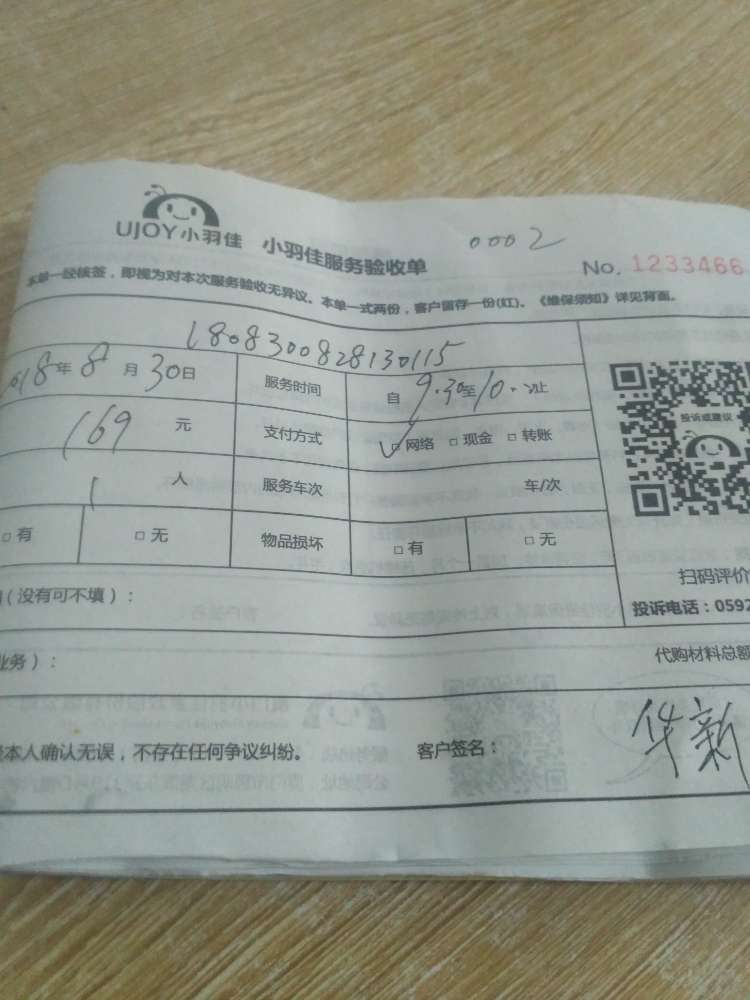 UJOY小羽佳 小羽佳服务验收单 0002
No. 1233466
本单一经核签，即视为对本次服务验收无异议。本单一式两份，客户留存一份(红)。《维保须知》详见背面。
1808300828130115
018年8月30日 服务时间 自9.30至10. 止
169元 支付方式 ✓□网络 □现金 □转账
投诉或建议
1人 服务车次 车/次
□有 □无 物品损坏 □有 □无
扫码评价
（没有可不填）：
投诉电话：0592
业务）：
代购材料总额
本人确认无误，不存在任何争议纠纷。 客户签名：华新